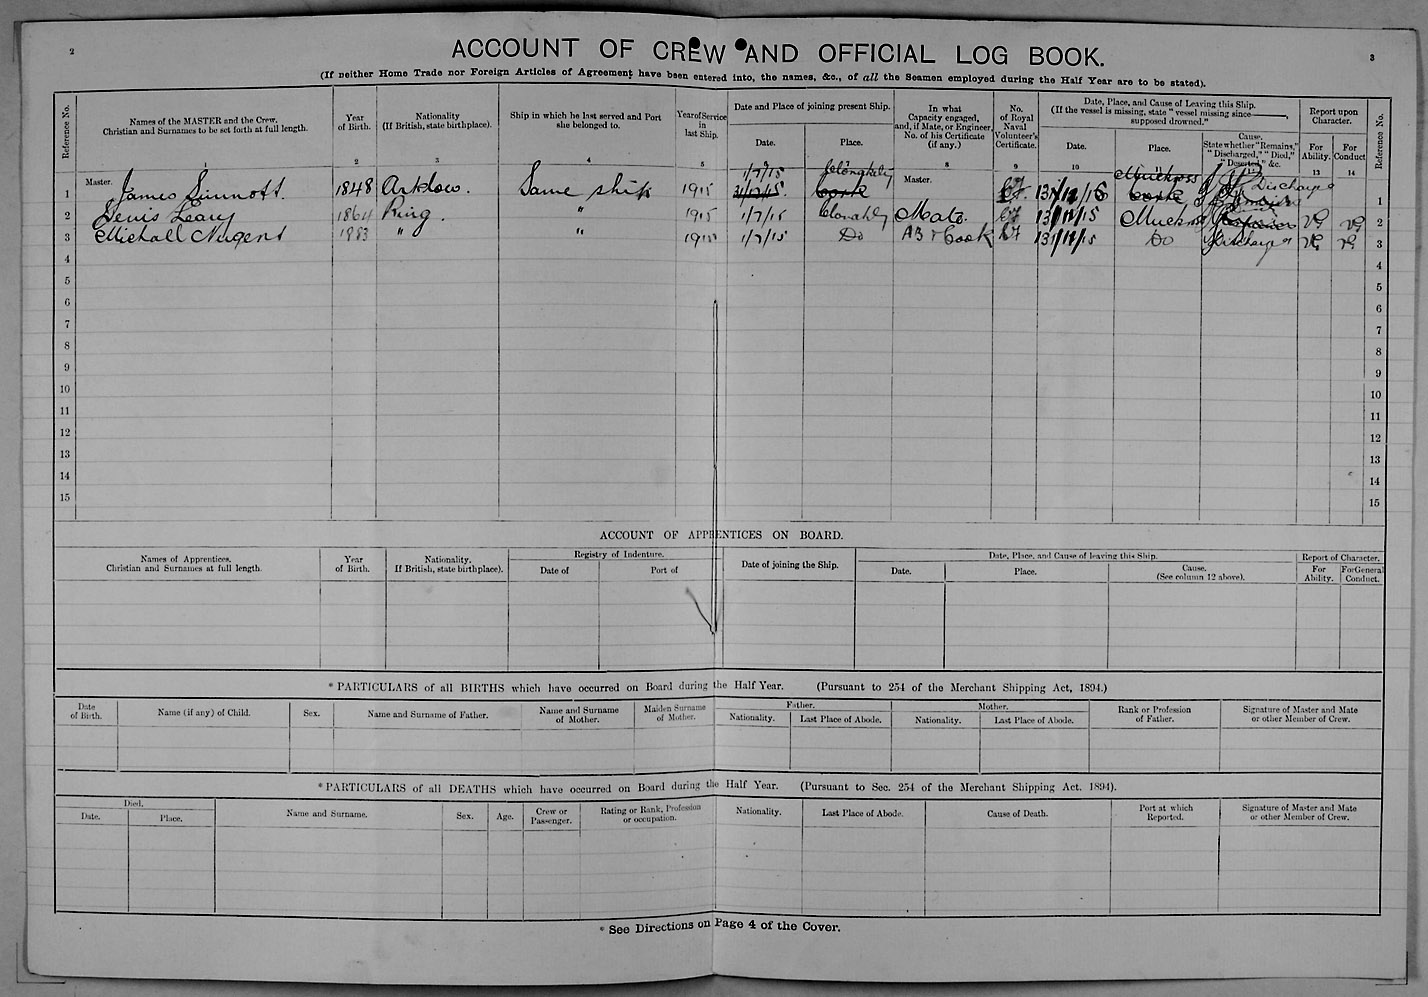 2
ACCOUNT OF CREW AND OFFICIAL LOG BOOK.
3
(If neither Home Trade nor Foreign Articles of Agreement have been entered into, the names, &c., of all the Seamen employed during the Half Year are to be stated).
Reference No.
Names of the MASTER and the Crew.
Christian and Surnames to be set forth at full length.
1
Year
of Birth.
2
Nationality
(If British, state birthplace).
3
Ship in which he last served and Port
she belonged to.
4
Year of Service
in
last Ship.
5
Date and Place of joining present Ship.
Date.
6
Place.
7
In what
Capacity engaged,
and, if Mate, or Engineer,
No. of his Certificate
(if any.)
8
No.
of Royal
Naval
Volunteer's
Certificate.
9
Date, Place, and Cause of Leaving this Ship.
(If the vessel is missing, state "vessel missing since ———,
supposed drowned."
Date.
10
Place.
11
Cause.
State whether "Remains,"
"Discharged," "Died,"
"Deserted," &c.
Report upon
Character.
For
Ability.
13
For
Conduct
14
Reference No.
Master. 1/7/15 Clonakilty Master. Muckross
1 James Sinnott. 1848 Arklow. Same ship 1915 31/12/15. Cork 31/12/15 Cork Discharged 1
2 Denis Leary 1864 Ring. " 1915 1/7/15 Clonakilty Mate. 31/12/15 VG VG 2
3 Michall Nugent 1883 " " 1915 1/7/15 Do AB & Cook 31/12/15 Do Discharged VG VG 3
4 4
5 5
6 6
7 7
8 8
9 9
10 10
11 11
12 12
13 13
14 14
15 15
ACCOUNT OF APPRENTICES ON BOARD.
Names of Apprentices.
Christian and Surnames at full length.
Year
of Birth.
Nationality.
If British, state birthplace).
Registry of Indenture.
Date of
Port of
Date of joining the Ship.
Date, Place, and Cause of leaving this Ship.
Date.
Place.
Cause.
(See column 12 above).
Report of Character.
For
Ability.
For General
Conduct.
* PARTICULARS of all BIRTHS which have occurred on Board during the Half Year. (Pursuant to 254 of the Merchant Shipping Act, 1894.)
Date
of Birth.
Name (if any) of Child.
Sex.
Name and Surname of Father.
Name and Surname
of Mother.
Maiden Surname
of Mother.
Father.
Nationality.
Last Place of Abode.
Mother.
Nationality.
Last Place of Abode.
Rank or Profession
of Father.
Signature of Master and Mate
or other Member of Crew.
* PARTICULARS of all DEATHS which have occurred on Board during the Half Year. (Pursuant to Sec. 254 of the Merchant Shipping Act. 1894).
Died.
Date.
Place.
Name and Surname.
Sex.
Age.
Crew or
Passenger.
Rating or Rank, Profession
or occupation.
Nationality.
Last Place of Abode.
Cause of Death.
Port at which
Reported.
Signature of Master and Mate
or other Member of Crew.
* See Directions on Page 4 of the Cover.